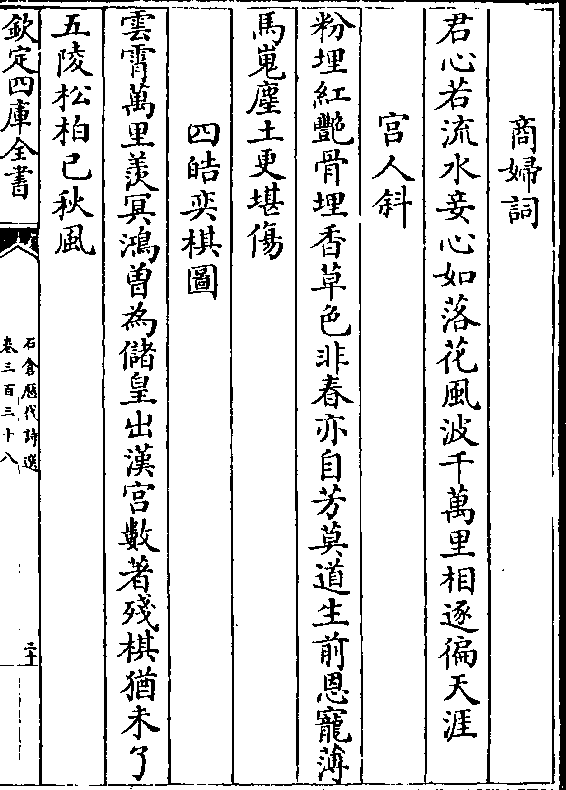 商婦詞
君心若流水妾心如落花風波千萬里相逐徧天涯
宫人斜
粉埋紅艷骨埋香草色非春亦自芳莫道生前恩寵薄
馬嵬塵土更堪傷
四皓奕棋圖
雲霄萬里羨冥鴻曽為儲皇出漢宫數著殘棋猶未了
五陵松柏已秋風
欽定四庫全書
石倉歷代詩選
卷三百三十八
二十